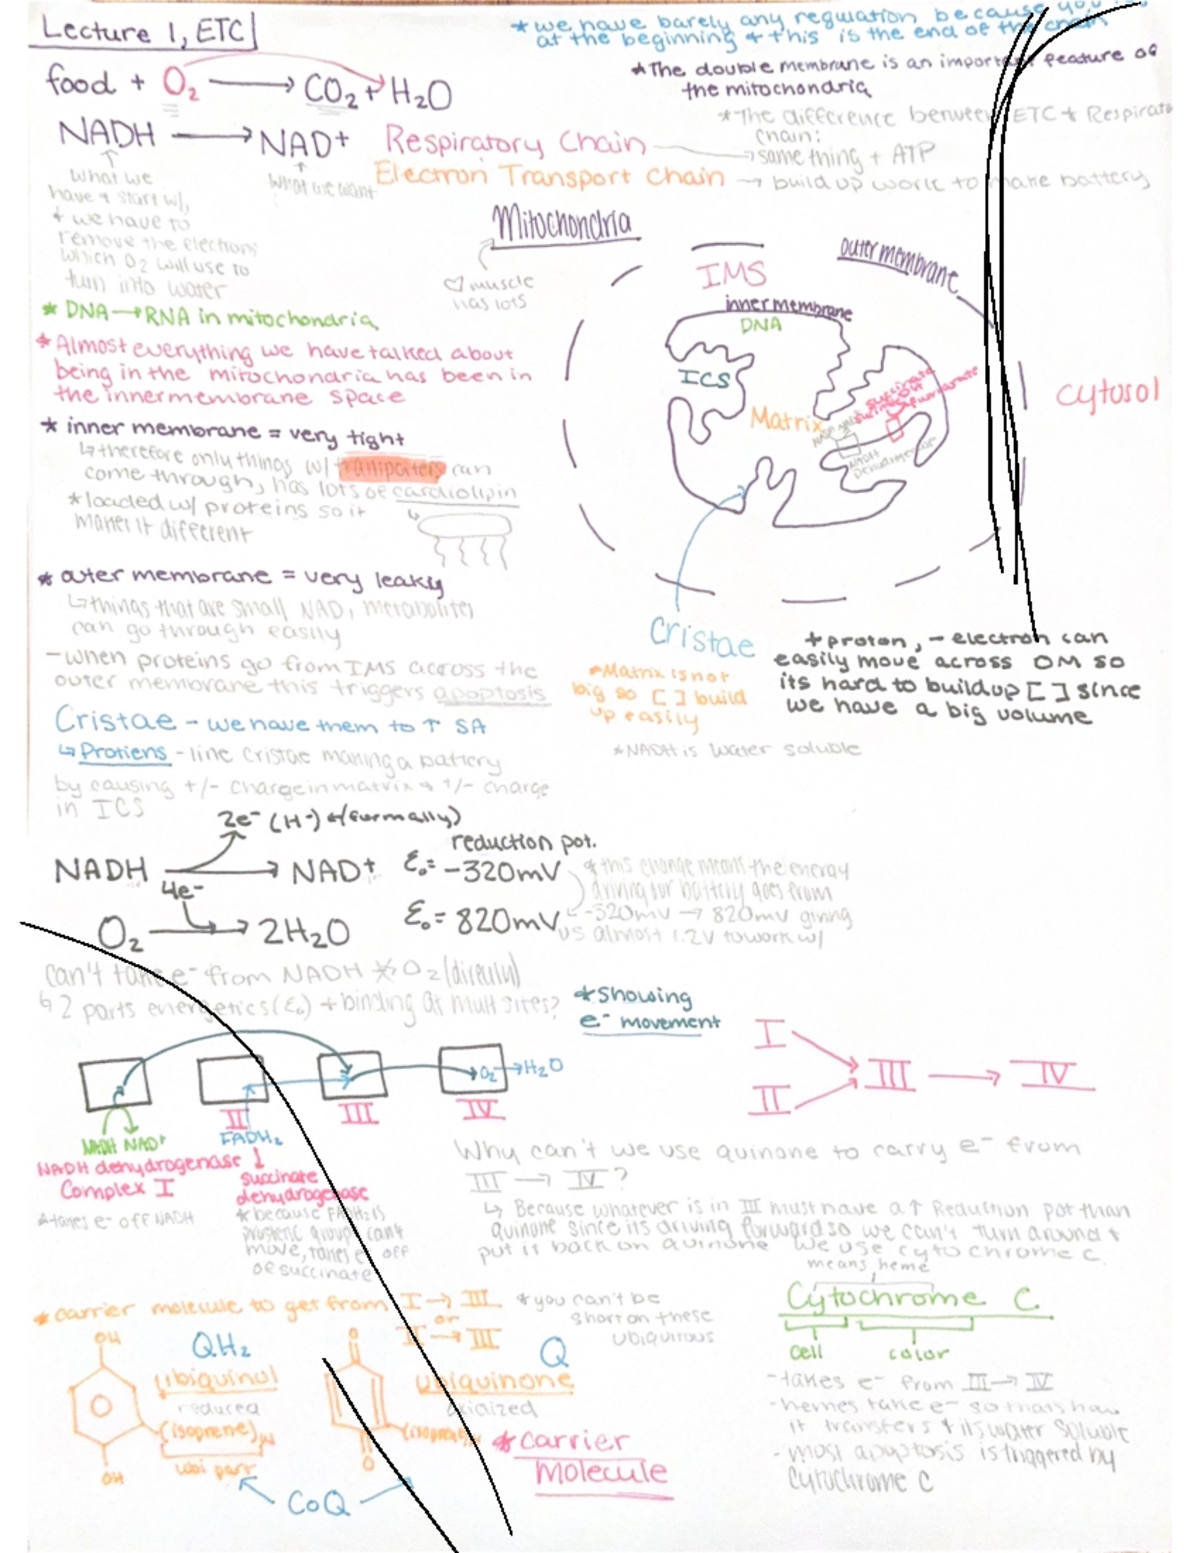 Lecture 1, ETC
*we have barely any regulation because you
at the beginning + this is the end of the chain
food + O₂ → CO₂ + H₂O
*The double membrane is an important feature of
the mitochondria
NADH → NAD+
Respiratory Chain
Electron Transport Chain
*The difference between ETC + Respirato
chain:
→ same thing + ATP
→ build up work to make battery
what we
have + start w/,
+ we have to
remove the electrons
which O₂ will use to
turn into water
what we want
Mitochondria
♡ muscle
has lots
IMS
outer membrane
inner membrane
DNA
ICS
Matrix
succinate
fumarate
NADH
dehydrogenase
cytosol
Cristae
* DNA → RNA in mitochondria
*Almost everything we have talked about
being in the mitochondria has been in
the inner membrane space
* inner membrane = very tight
↳ therefore only things w/ transporters can
come through, has lots of cardiolipin
*loaded w/ proteins so it
makes it different
* outer membrane = very leaky
↳ things that are small NAD, metabolites
can go through easily
- when proteins go from IMS across the
outer membrane this triggers apoptosis
Cristae - we have them to ↑ SA
↳ Protiens - line cristae making a battery
by causing +/- charge in matrix + +/- charge
in ICS
*Matrix is not
big so [ ] build
up easily
+ proton, - electron can
easily move across OM so
its hard to buildup [ ] since
we have a big volume
*NADH is water soluble
2e⁻ (H⁻) (formally)
reduction pot.
NADH → NAD+ ℰ₀= -320mV
4e⁻
O₂ → 2H₂O ℰ₀= 820mV
*this change means the energy
driving our battery goes from
-320mv → 820mv giving
us almost 1.2V to work w/
can't take e⁻ from NADH → O₂ (directly)
↳ 2 parts energetics (ℰ₀) + binding at mult sites?
*Showing
e⁻ movement
I
II
III → IV
O₂ → H₂O
II
III
IV
NADH NAD+
FADH₂
NADH dehydrogenase
Complex I
*takes e⁻ off NADH
succinate
dehydrogenase
*because FADH₂ is
prostetic group can't
move, takes e⁻ off
of succinate
Why can't we use quinone to carry e⁻ from
III → IV?
↳ Because whatever is in III must have a ↑ Reduction pot than
quinone since its driving forward so we can't turn around +
put it back on quinone we use cytochrome c
*carrier molecule to get from I → III
or
II → III
*you can't be
short on these
ubiquitous
means heme
Cytochrome C
cell color
- takes e⁻ from III → IV
- hemes take e⁻ so thats how
it transfers + its water soluble
- most apoptosis is triggered by
Cytochrome C
OH
QH₂
ubiquinol
reduced
(isoprene)
ubi part
OH
O
Q
ubiquinone
oxidized
(isoprene)
O
CoQ
*carrier
molecule